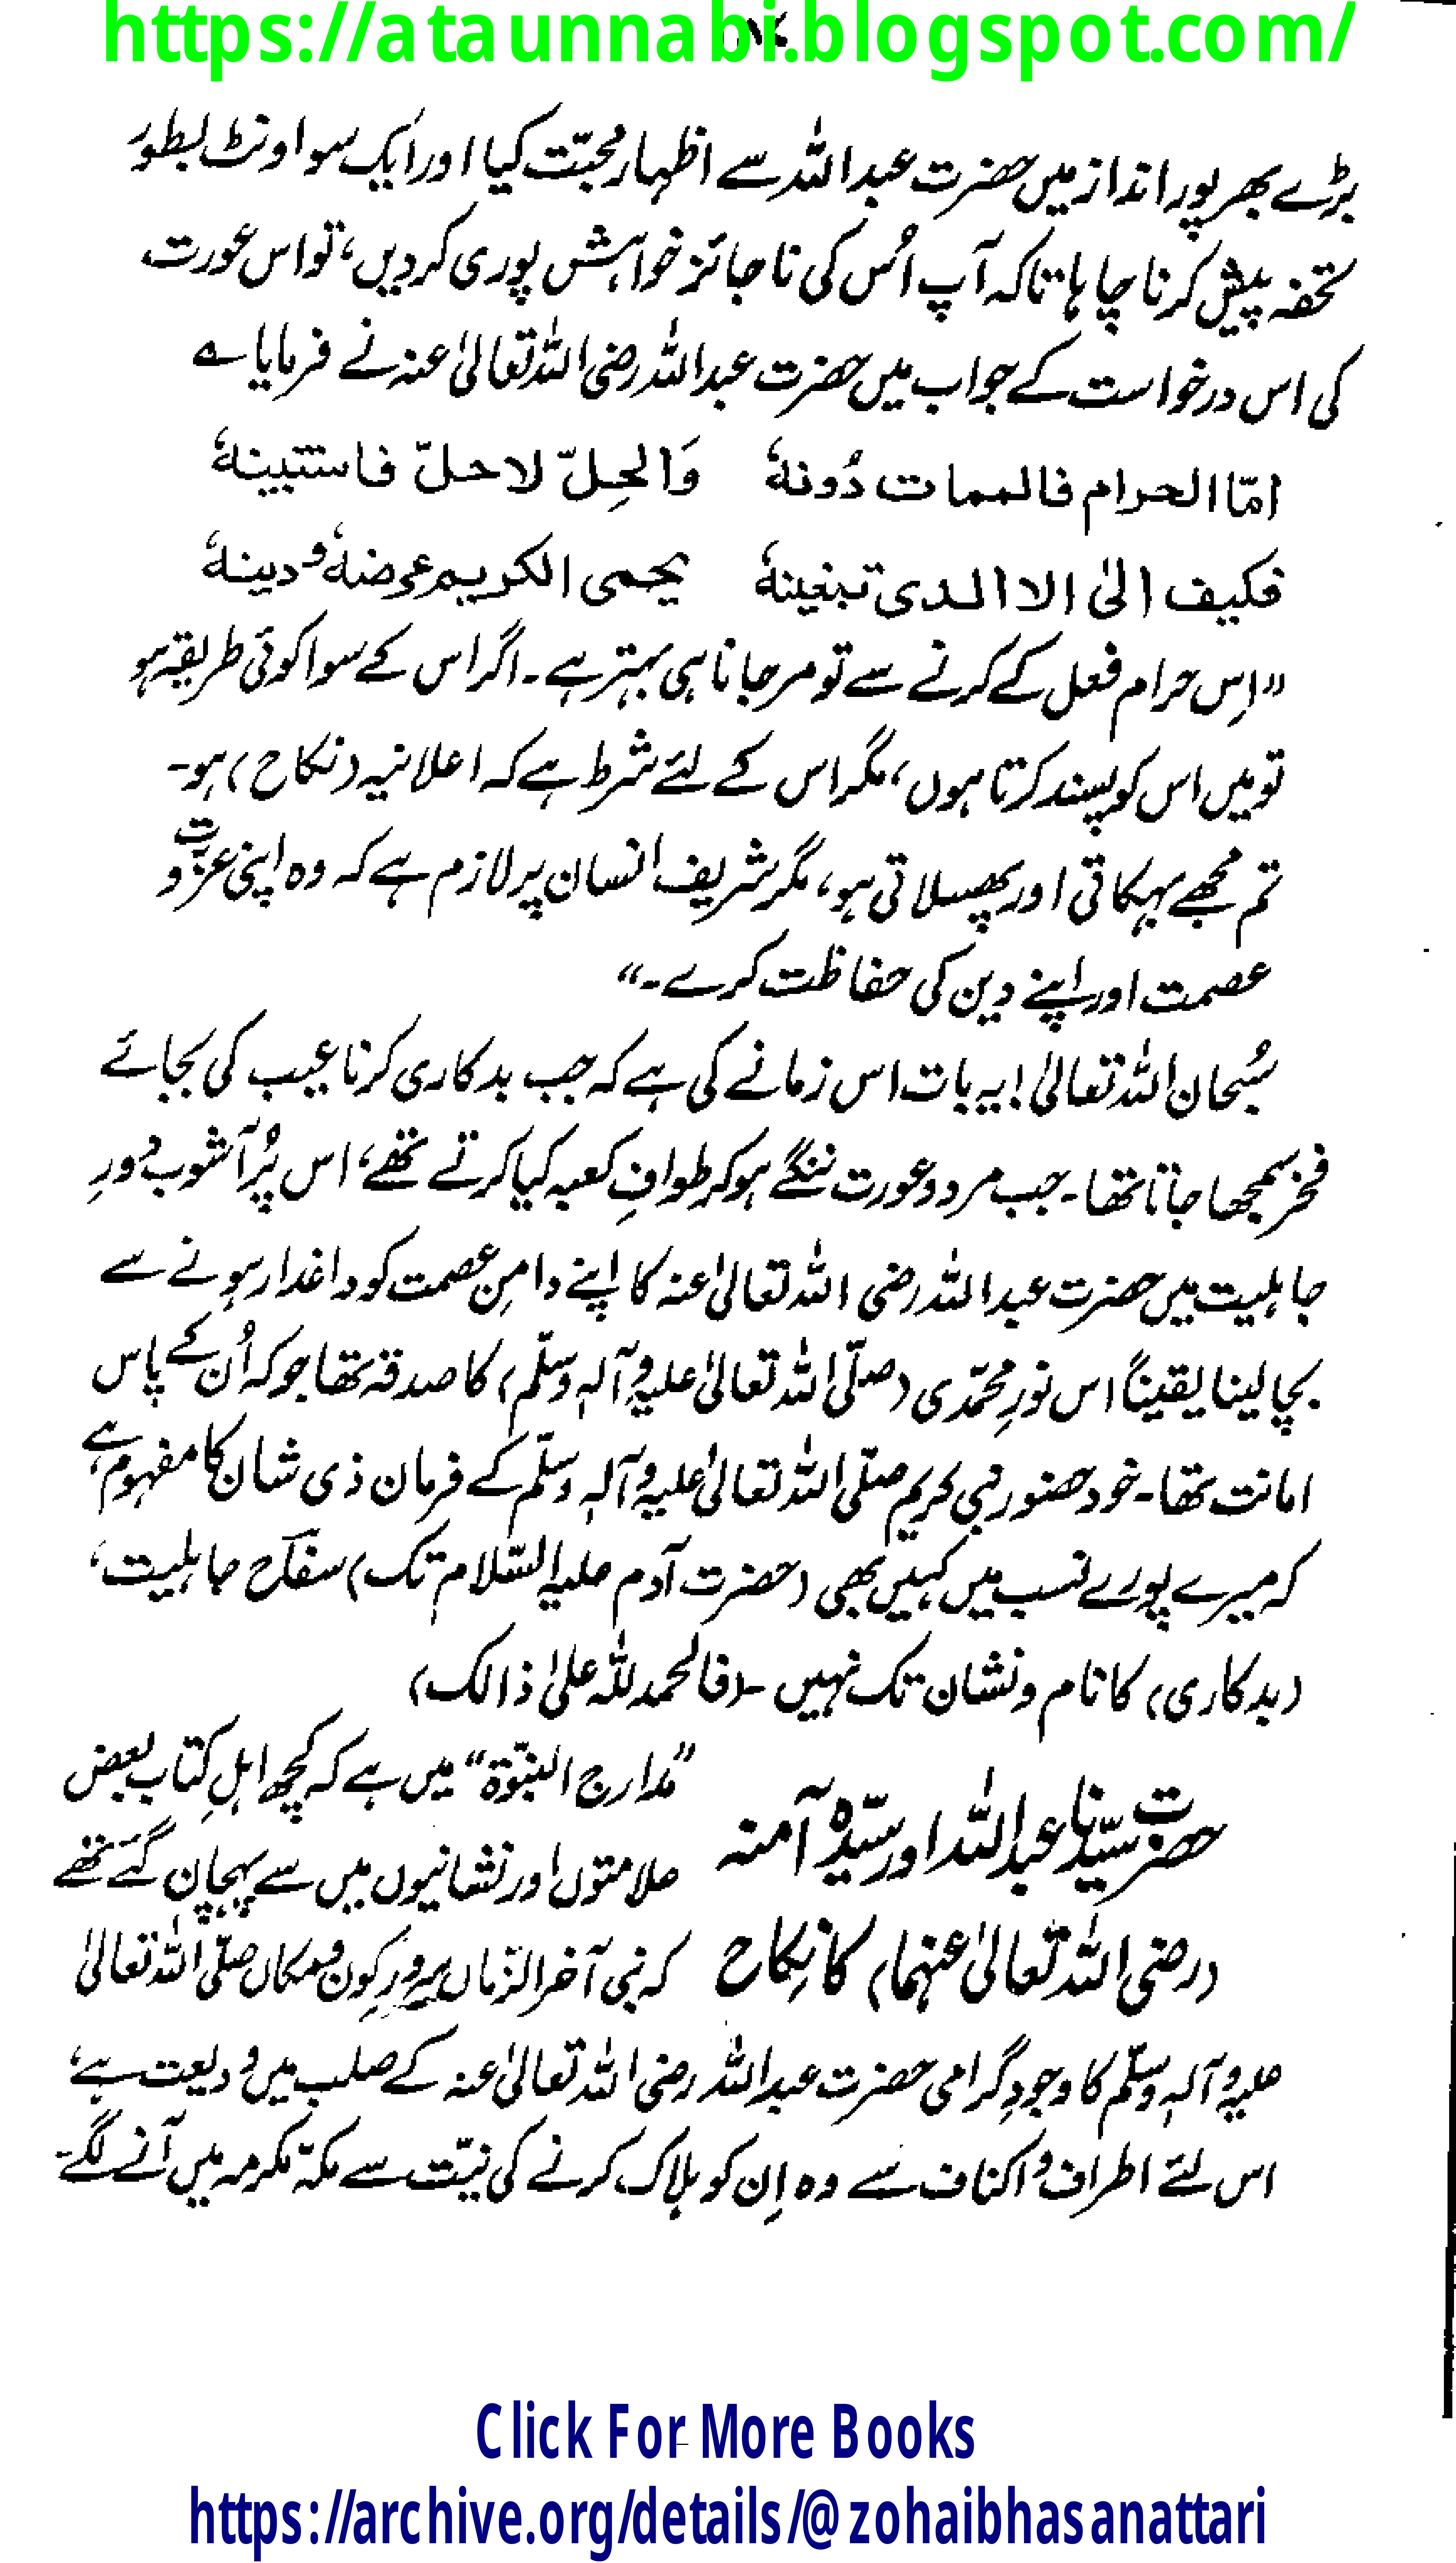 https://ataunnabi.blogspot.com/
بڑے بھرپور انداز میں حضرت عبداللہ سے اظہار محبّت کیا اور ایک سو اونٹ بطور
تحفہ پیش کرنا چاہا تاکہ آپ اُس کی ناجائز خواہش پوری کر دیں، تو اس عورت
کی اس درخواست کے جواب میں حضرت عبداللہ رضی اللہ تعالیٰ عنہ نے فرمایا ؎
امّا الحرام فالممات دُونهٗ وَالحِلّ لاحلّ فاستبینهٗ
فکیف الیٰ الا الـدی تبغینهٗ یحمی الکریم عرضهٗ و دینهٗ
”اِس حرام فعل کے کرنے سے تو مر جانا ہی بہتر ہے۔ اگر اس کے سوا کوئی طریقہ ہو
تو میں اس کو پسند کرتا ہوں، مگر اس کے لئے شرط ہے کہ اعلانیہ (نکاح) ہو۔
تم مجھے بہکاتی اور پھسلاتی ہو، مگر شریف انسان پر لازم ہے کہ وہ اپنی عزّت و
عصمت اور اپنے دین کی حفاظت کرے۔“
سُبحان اللہ تعالیٰ! یہ بات اس زمانے کی ہے کہ جب بدکاری کرنا عیب کی بجائے
فخر سمجھا جاتا تھا۔ جب مرد و عورت ننگے ہو کر طوافِ کعبہ کیا کرتے تھے، اس پُر آشوب دورِ
جاہلیت میں حضرت عبداللہ رضی اللہ تعالیٰ عنہ کا اپنے دامنِ عصمت کو داغدار ہونے سے
بچا لینا یقیناً اس نورِ محمّدی (صلّی اللہ تعالیٰ علیہ وآلہٖ وسلّم) کا صدقہ تھا جو کہ اُن کے پاس
امانت تھا۔ خود حضور نبی کریم صلّی اللہ تعالیٰ علیہ وآلہٖ وسلّم کے فرمان ذی شان کا مفہوم ہے،
کہ میرے پورے نسب میں کہیں بھی (حضرت آدم علیہ السّلام تک) سفاح جاہلیت،
(بدکاری) کا نام و نشان تک نہیں۔ (فالحمد للہ علیٰ ذالک)
حضرت سیّدنا عبداللہ اور سیّدہ آمنہ
(رضی اللہ تعالیٰ عنہما) کا نکاح
”مدارج النبوّۃ“ میں ہے کہ کچھ اہلِ کتاب بعض
علامتوں اور نشانیوں میں سے پہچان گئے تھے
کہ نبی آخر الزماں سرورِ کون و مکاں صلّی اللہ تعالیٰ
علیہ وآلہٖ وسلّم کا وجودِ گرامی حضرت عبداللہ رضی اللہ تعالیٰ عنہ کے صلب میں ودیعت ہے،
اس لئے اطراف و اکناف سے وہ اِن کو ہلاک کرنے کی نیّت سے مکہّ مکرمہ میں آنے لگے۔
Click For More Books
https://archive.org/details/@zohaibhasanattari